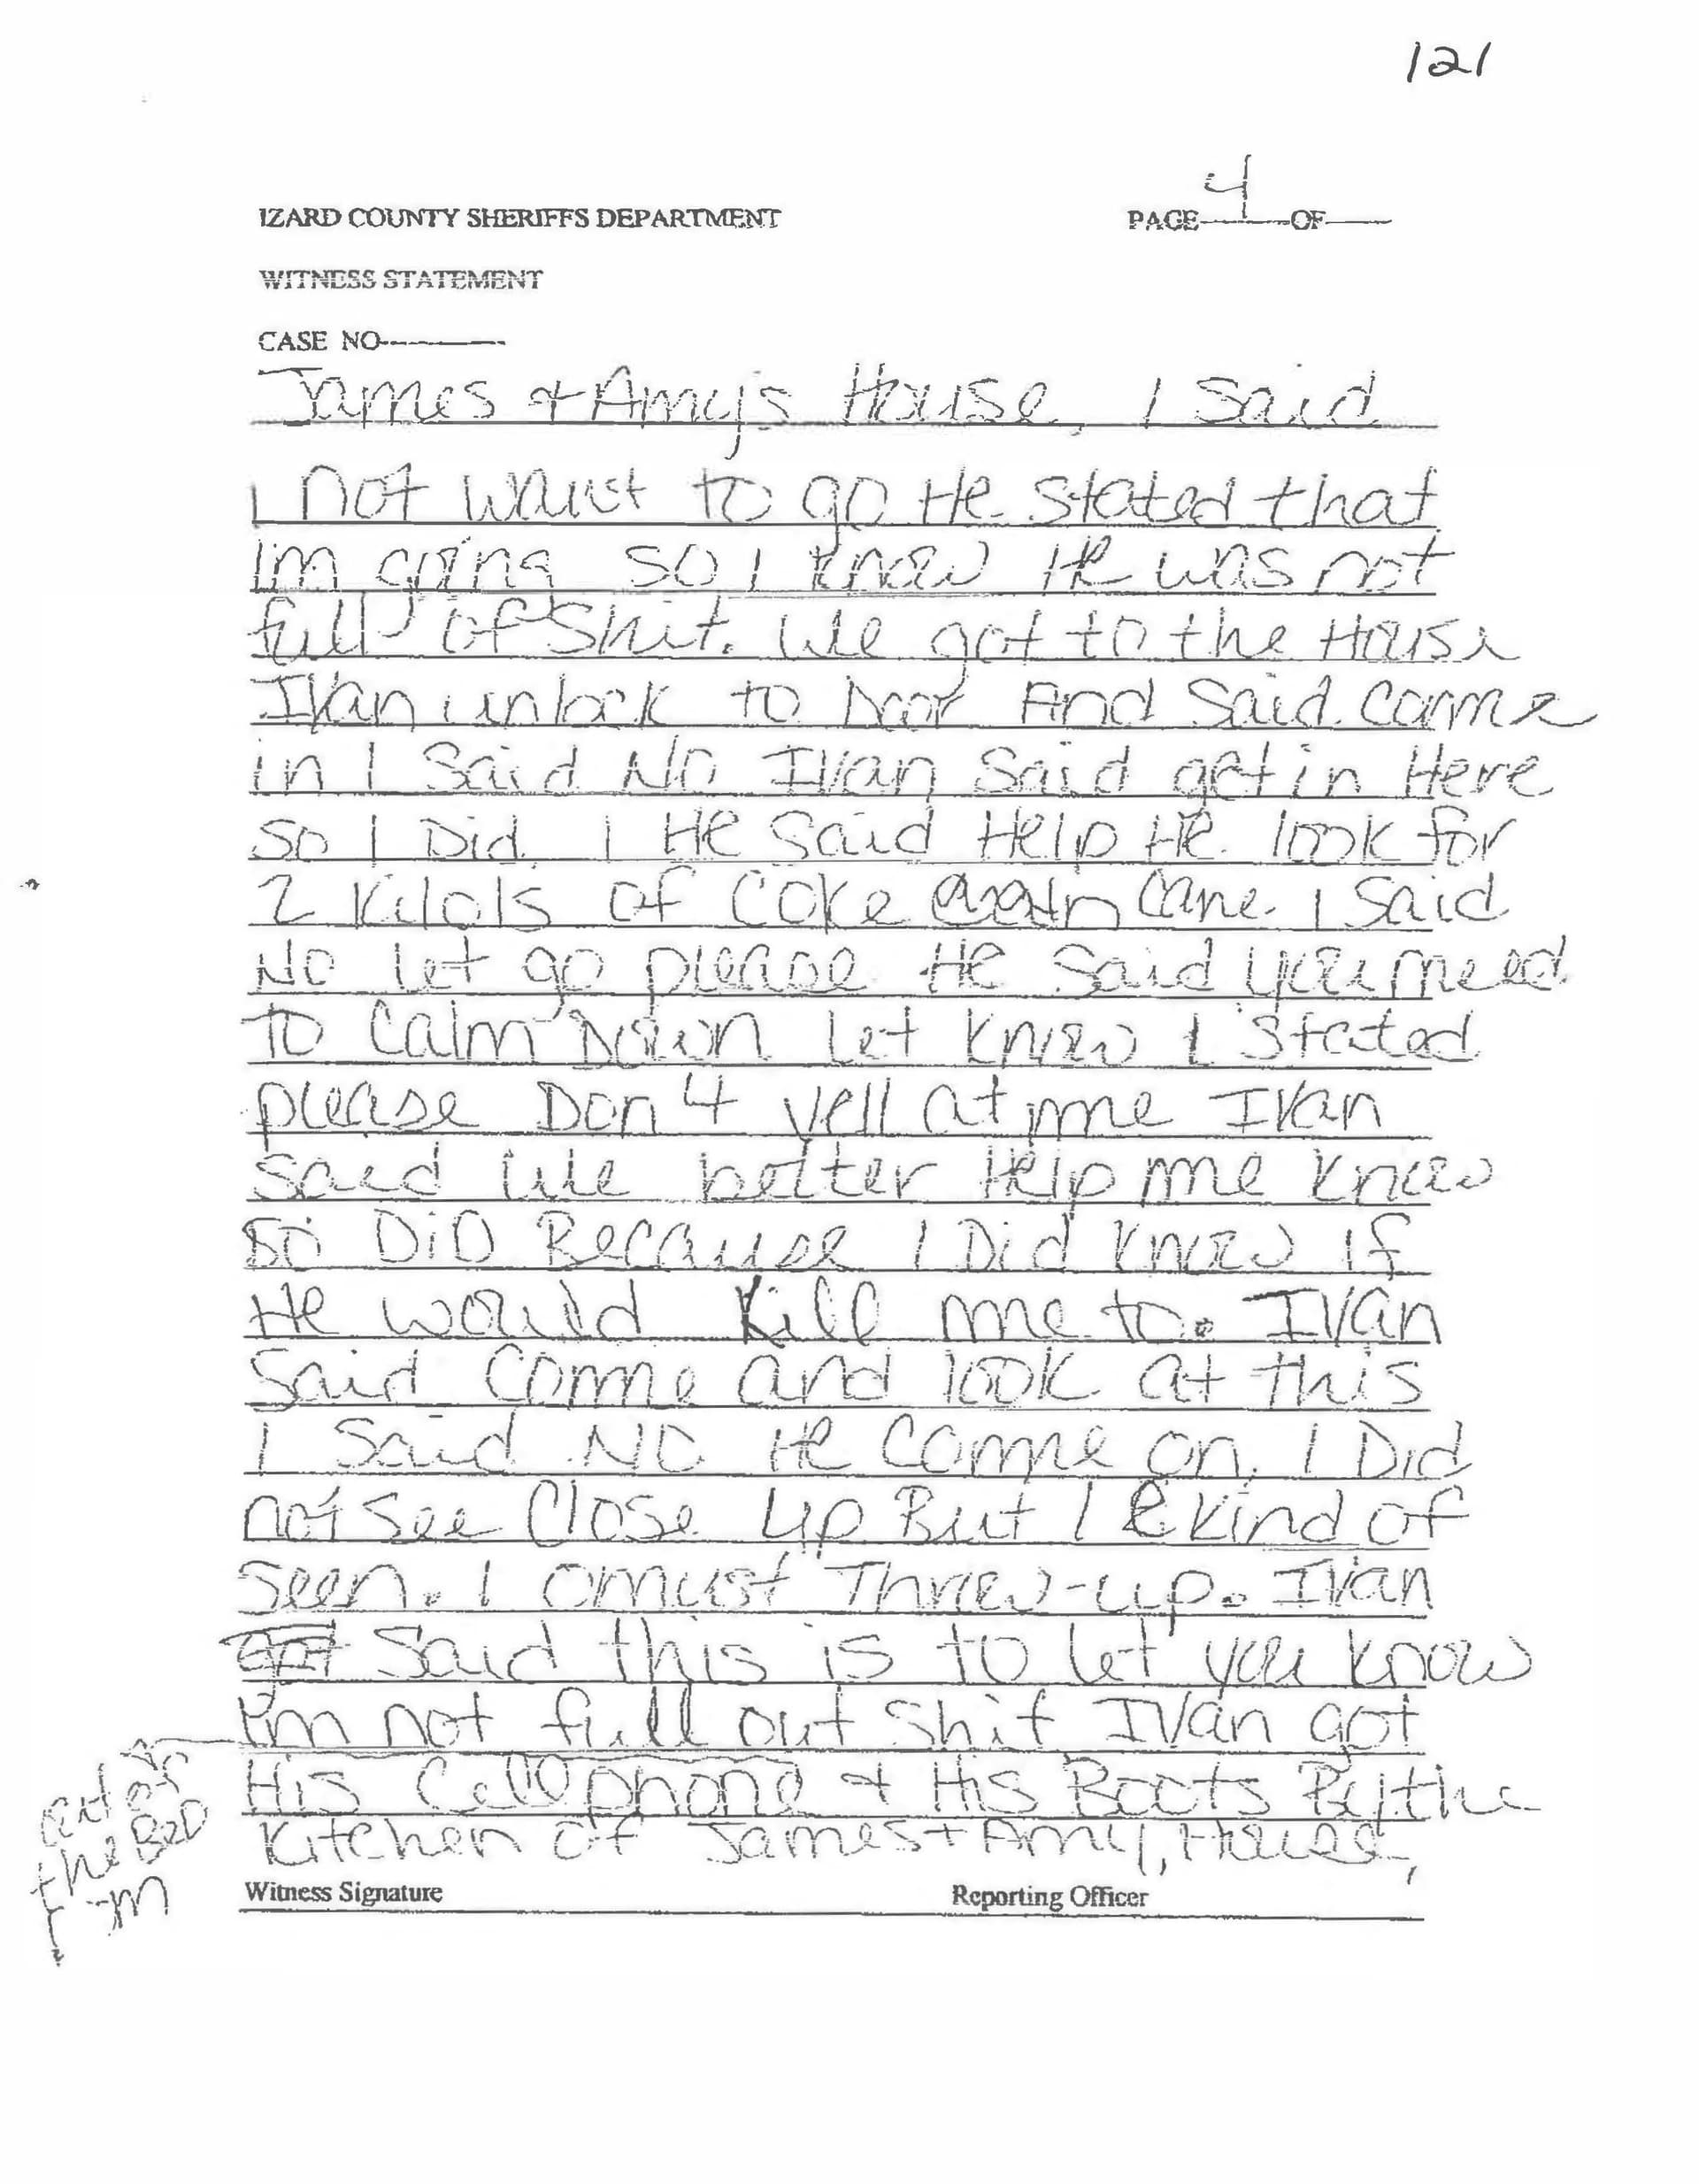 121
4
IZARD COUNTY SHERIFFS DEPARTMENT PAGE OF
WITNESS STATEMENT
CASE NO
James + Amy's House, I Said
I not want to go He stated that
Im going so I know He was not
full of Shit. We got to the House
Ivan unlock to Door And Said Come
in I Said No Ivan Said get in Here
so I Did I He Said Help He look for
2 Kilols of Coke Cane I Said
No let go please He Said you need
to Calm Down Let know I Stated
please Don4 yell at me Ivan
Said We better Help me know
so DiD Because I Did know if
He would Kill me to. Ivan
Said Come and look at this
I Said NO He Come on, I Did
not See Close Up But I Kind of
seen. I omust Threw-up. Ivan
got Said this is to let you know
I'm not full out Shit Ivan got
His Cellphone + His Boots By the
Kitchen of James + Amy, House,
out of
the BeD
Witness Signature Reporting Officer